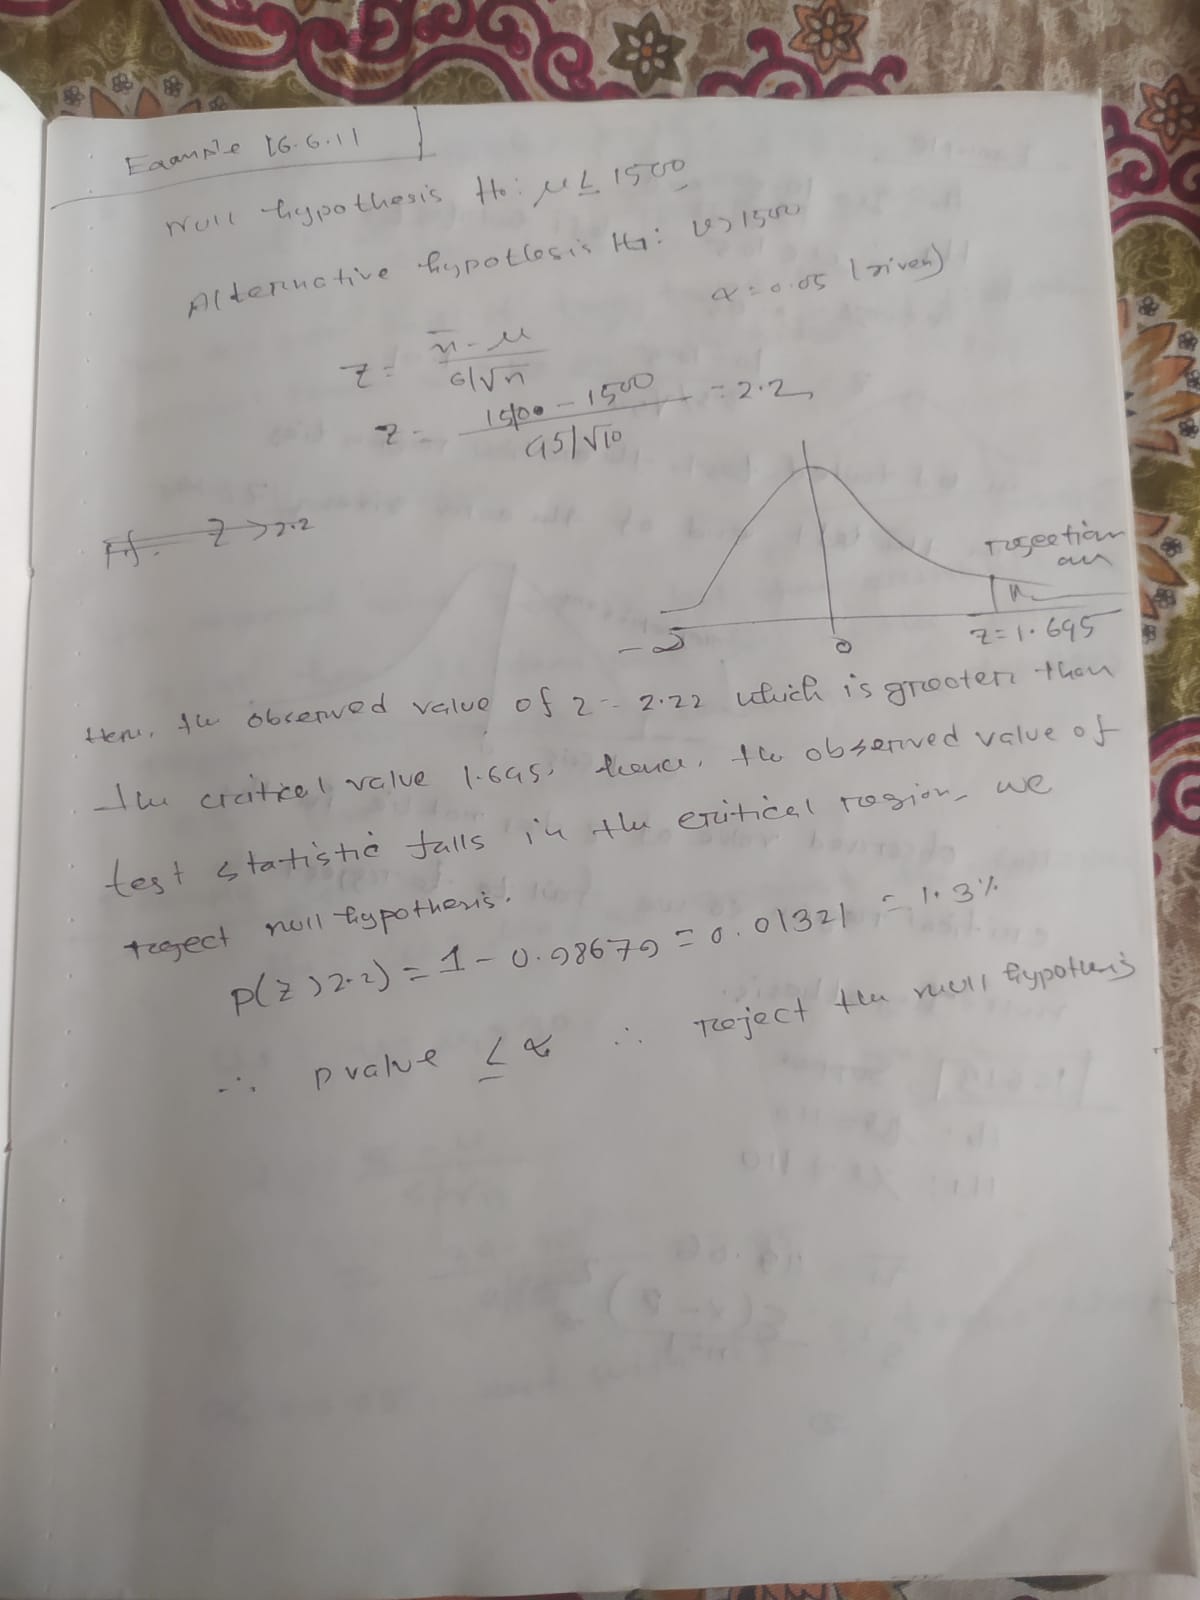 Example 16.6.11
Null hypothesis H₀: μ ≤ 1500
Alternative hypothesis H₁: μ > 1500
α = 0.05 (given)
z = x̄ - μ / σ/√n
z = - 1500 / 45/√10 = 2.2
z > 2.2
rejection
-∞ 0 z = 1.645
Here, the observed value of z = 2.22 which is greater than
the critical value 1.645. hence, the observed value of
test statistic falls in the critical region. we
reject null hypothesis.
P(z > 2.2) = 1 - 0.98679 = 0.01321 = 1.3%
∴ p value ≤ α ∴ reject the null hypothesis